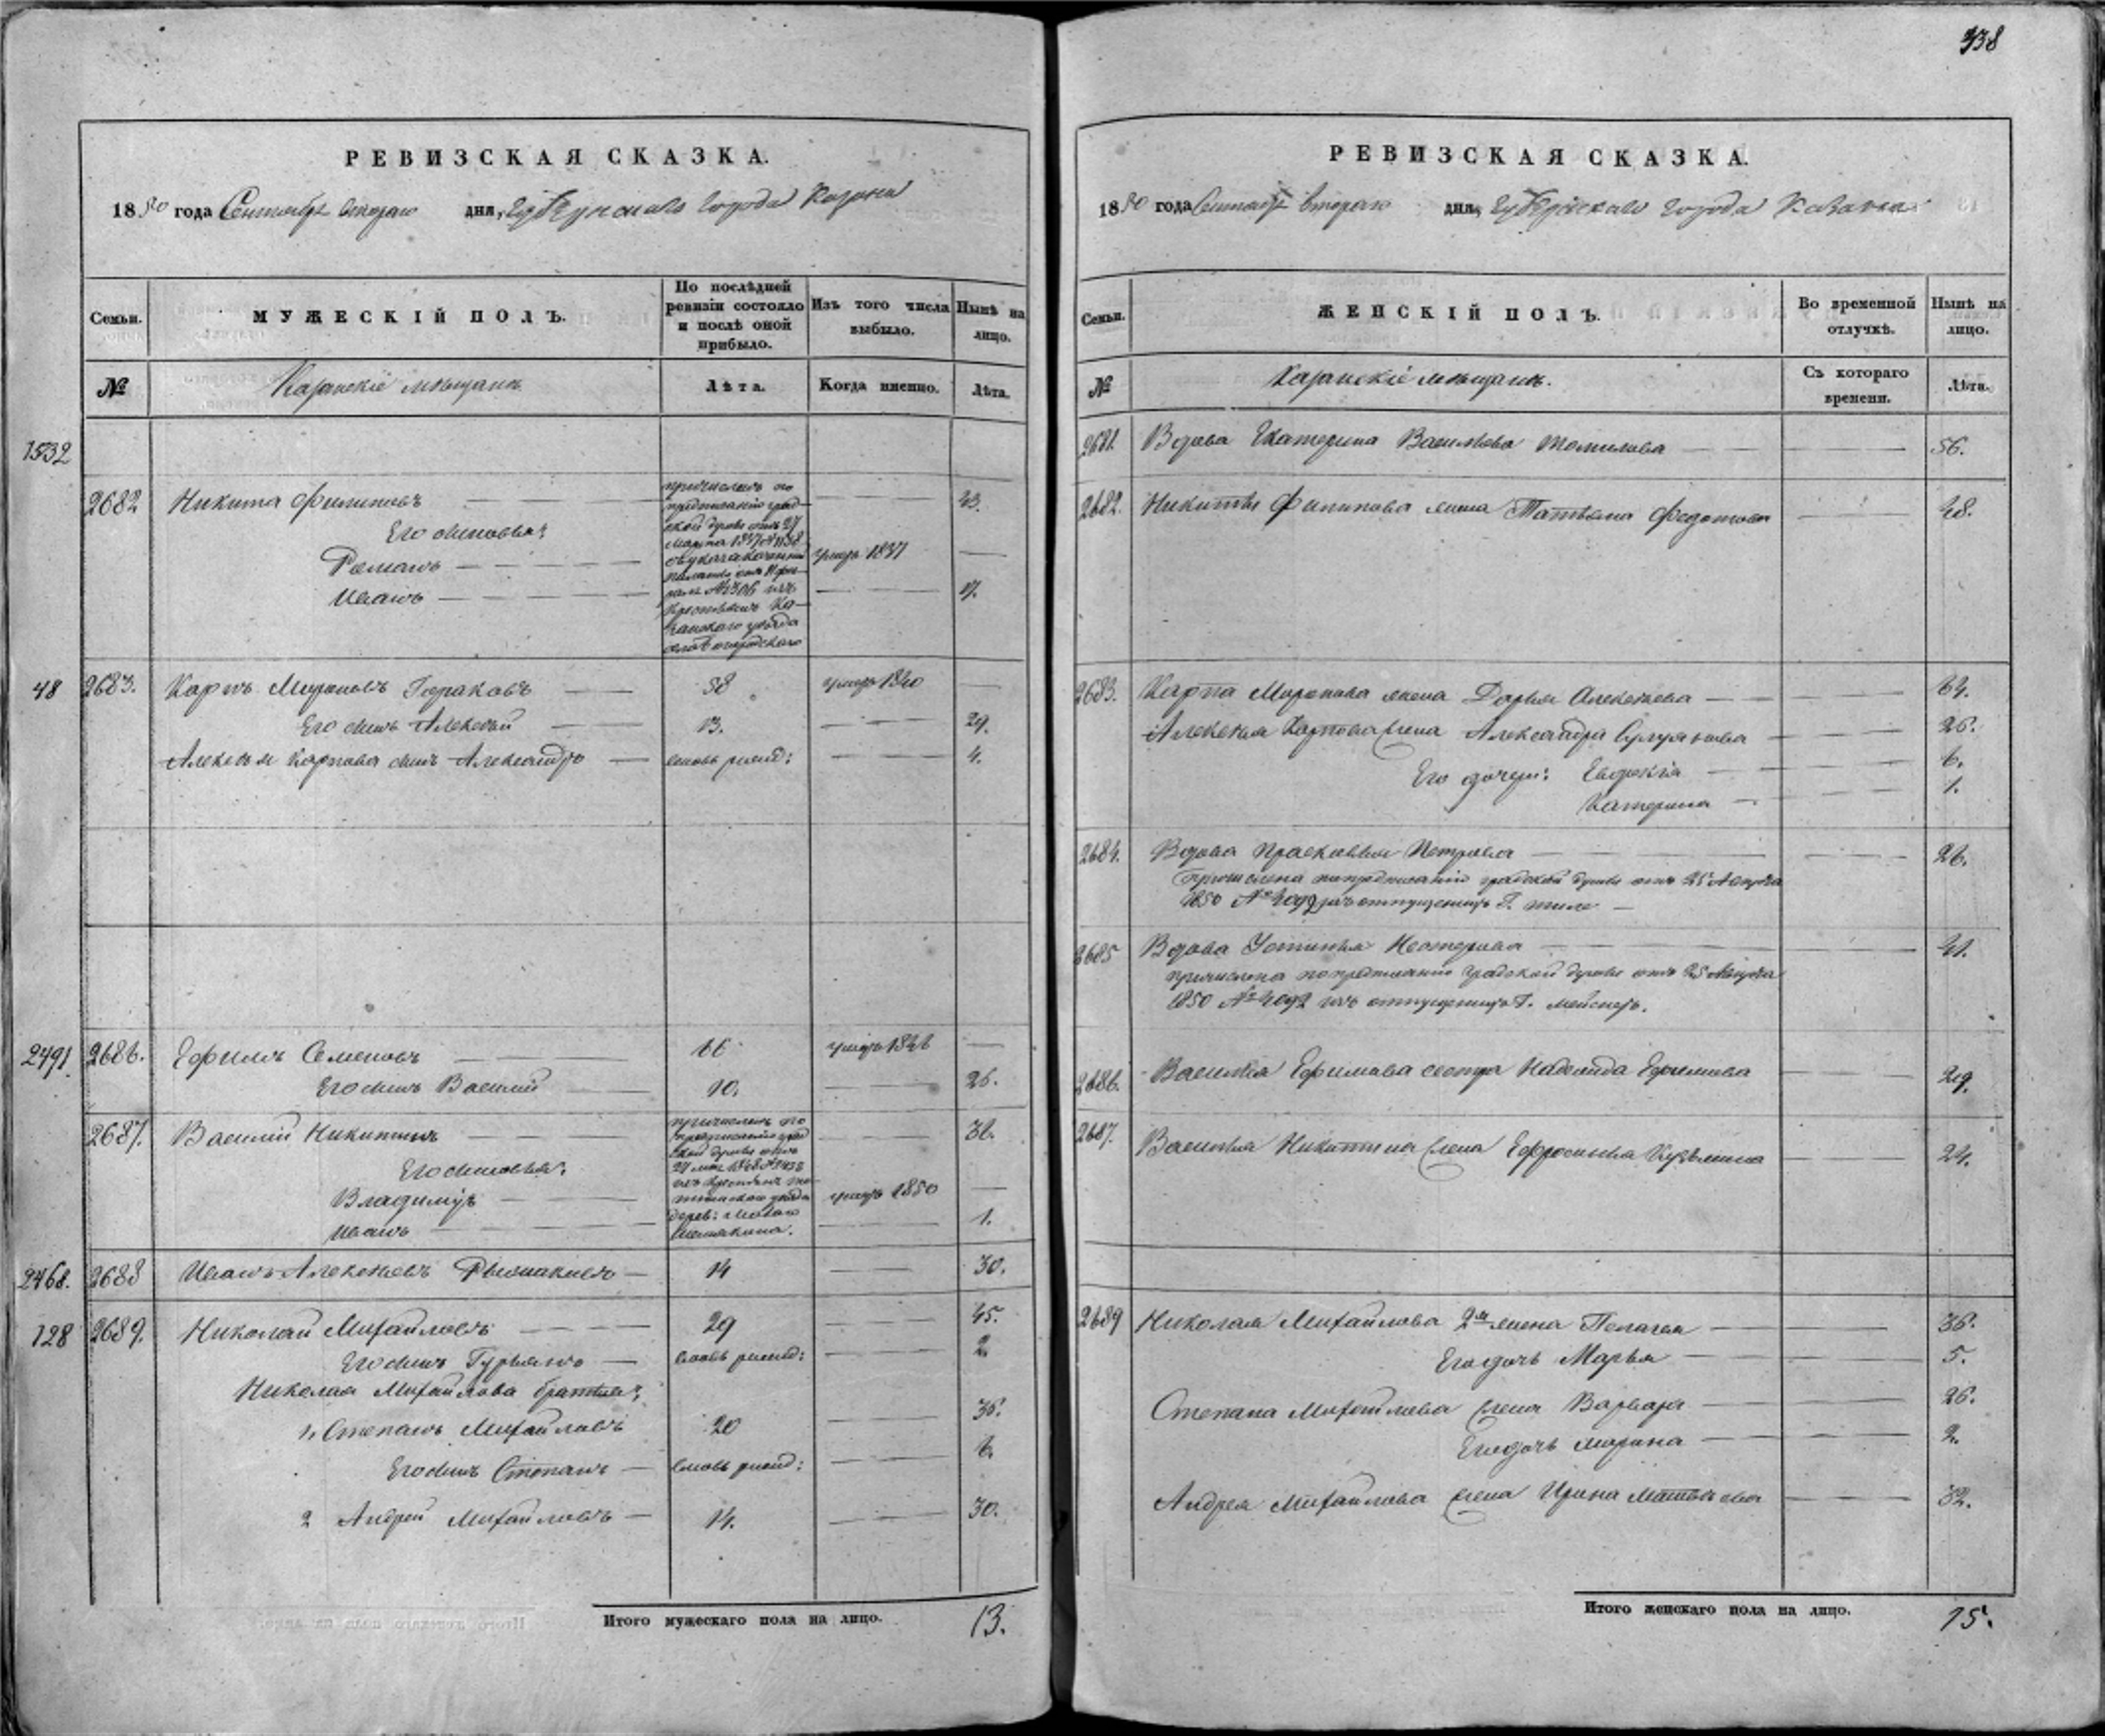 338
РЕВИЗСКАЯ СКАЗКА.
1850 года Сентября второго дня, Губернскаго города Казани
Семьи. МУЖЕСКІЙ ПОЛЪ. По послѣдней ревизіи состояло и послѣ оной прибыло. Изъ того числа выбыло. Нынѣ на лицо.
№ Казанскіе мѣщане Лѣта. Когда именно. Лѣта.
1532
2682 Никита Филиповъ причисленъ по 43.
предписанію град-
Его сыновья: ской думы отъ 27
марта 1837 № 1138
Романъ умеръ 1837
Иванъ 17.
48 2683. Карпъ Мироновъ 58 умеръ 1840
Его сынъ Алексѣй 13. 29.
Алексѣя Карпова сынъ Александръ вновь рожд: 4.
2491 2686. Ефимъ Семеновъ 66 умеръ 1846
Его сынъ Василій 10. 26.
2687. Василій Никитинъ причисленъ по
предписанію град
Его сыновья: ской думы отъ
Владимиръ умеръ 1850
Иванъ 1.
2468. 2688 Иванъ Алексѣевъ 14 30.
128 2689. Николай Михайловъ 29 45.
Его сынъ Гурьянъ вновь рожд: 2.
Николая Михайлова братья:
1, Степанъ Михайловъ 20 36.
Его сынъ Степанъ вновь рожд: 6.
2 Андрей Михайловъ 14. 30.
Итого мужескаго пола на лицо. 13.
РЕВИЗСКАЯ СКАЗКА.
1850 года Сентября втораго дня, Губернскаго города Казани
Семьи. ЖЕНСКІЙ ПОЛЪ. Во временной отлучкѣ. Нынѣ на лицо.
№ Казанскіе мѣщане. Съ котораго времени. Лѣта.
2681. Вдова Екатерина Васильева Томилова 56.
2682. Никиты Филипова жена Татьяна Федотова 48.
2683. Карпа Миронова жена Дарья Алексѣева 64.
Алексѣя Карпова жена Александра 26.
Его дочери: Евдокія 6.
Катерина 1.
2684. Вдова Прасковья Петрова 26.
Причислена по предписанію градской думы отъ 25 Августа
1850 № 4092 изъ отпущенницъ Г.
2685 Вдова Устинья Нестерова 41.
причислена по предписанію градской думы отъ 25 Августа
1850 № 4092 изъ отпущенницъ Г. Мейснеръ.
2686. Василья Ефимова сестра Надежда Ефимова 29.
2687. Василья Никитина жена Ефросинья Кузьмина 24.
2689 Николая Михайлова 2я жена Пелагея 36.
Его дочь Марья 5.
Степана Михайлова жена Варвара 26.
Его дочь Марина 2.
Андрея Михайлова жена Ирина Матвѣева 32.
Итого женскаго пола на лицо. 15.